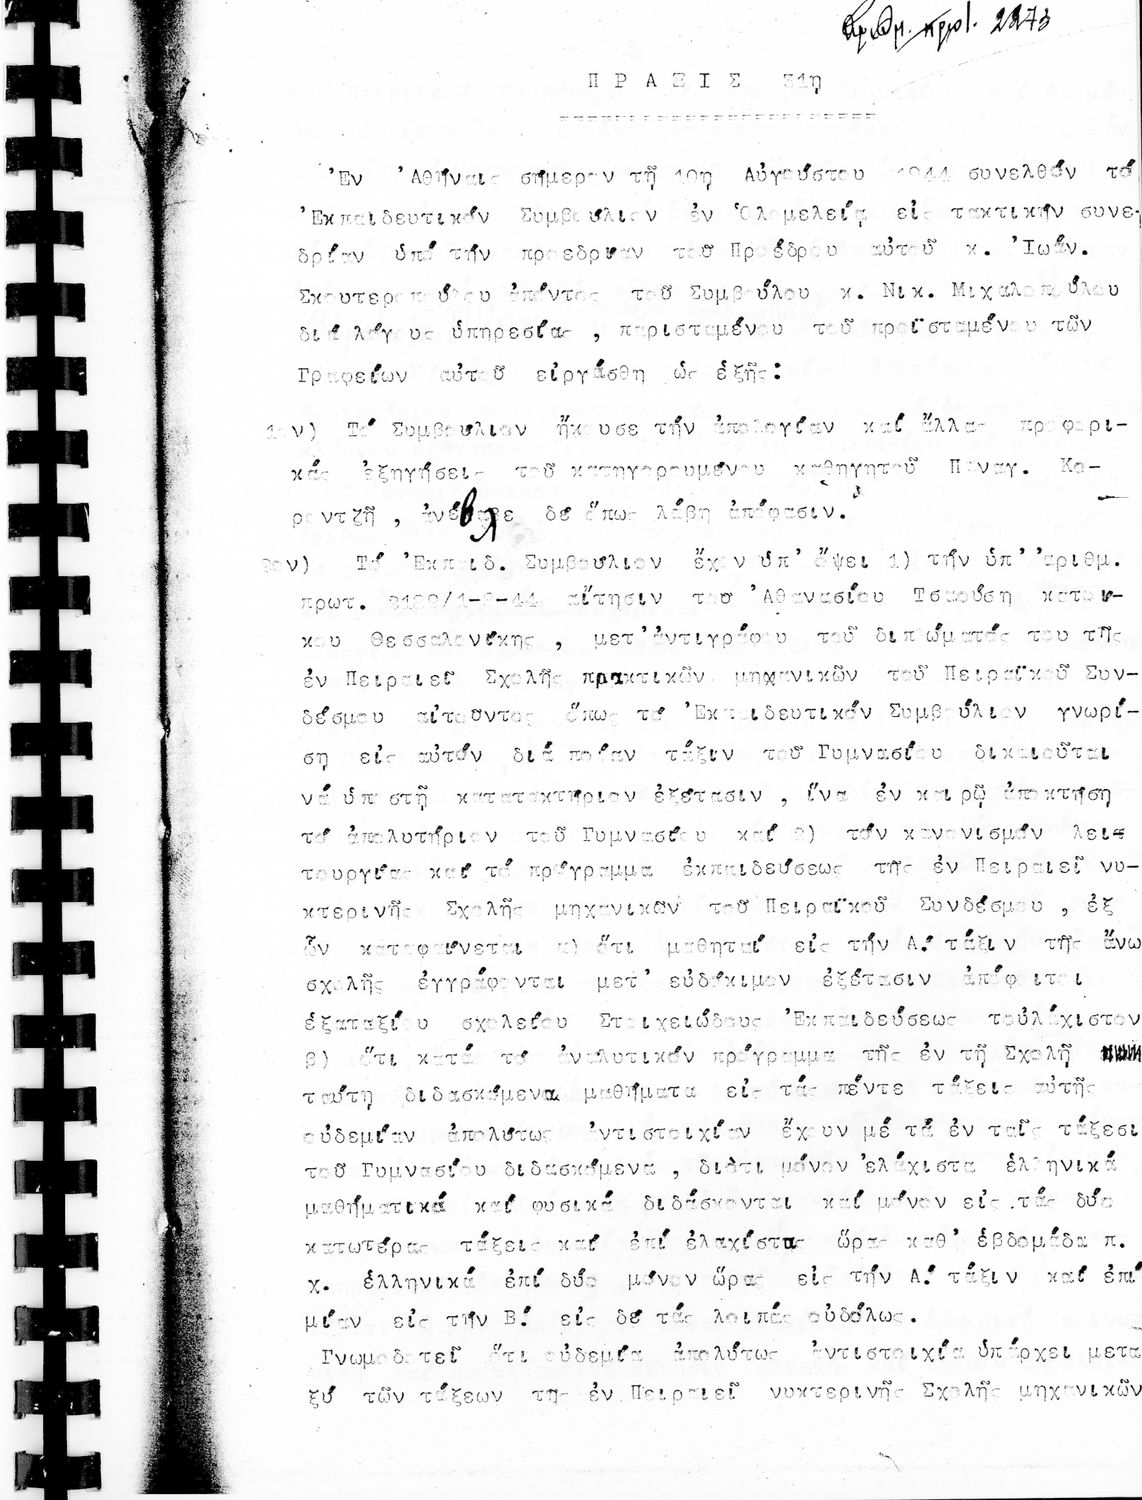 ἀριθμ. πρωτ. 2273
ΠΡΑΞΙΣ 31η
Ἐν Ἀθήναις σήμερον τῇ 10ῃ Αὐγούστου 1944 συνελθόν τό
Ἐκπαιδευτικόν Συμβούλιον ἐν Ὁλομελείᾳ εἰς τακτικήν συνε-
δρίαν ὑπό τήν προεδρείαν τοῦ Προέδρου αὐτοῦ κ. Ἰωάν.
Σκουτεροπούλου ἀπόντος τοῦ Συμβούλου κ. Νικ. Μιχαλοπούλου
διά λόγους ὑπηρεσίας , παρισταμένου τοῦ προϊσταμένου τῶν
Γραφείων αὐτοῦ εἰργάσθη ὡς ἑξῆς:
1ον) Τό Συμβούλιον ἤκουσε τήν ἀπολογίαν καί ἄλλας προφορι-
κάς ἐξηγήσεις τοῦ κατηγορουμένου καθηγητοῦ Παναγ. Κο-
ροντζῆ , ἀνέβαλε δέ ὅπως λάβῃ ἀπόφασιν.
2ον) Τό Ἐκπαιδ. Συμβούλιον ἔχον ὑπ' ὄψει 1) τήν ὑπ' ἀριθμ.
πρωτ. /1-8-44 αἴτησιν τοῦ Ἀθανασίου Τσαούση κατοί-
κου Θεσσαλονίκης , μετ' ἀντιγράφου τοῦ διπλώματός του τῆς
ἐν Πειραιεῖ Σχολῆς πρακτικῶν μηχανικῶν τοῦ Πειραϊκοῦ Συν-
δέσμου αἰτοῦντος ὅπως τό Ἐκπαιδευτικόν Συμβούλιον γνωρί-
ση εἰς αὐτόν διά ποίαν τάξιν τοῦ Γυμνασίου δικαιοῦται
νά ὑποστῇ κατατακτήριον ἐξέτασιν , ἵνα ἐν καιρῷ ἀποκτήση
τό ἀπολυτήριον τοῦ Γυμνασίου καί 2) τόν κανονισμόν λει-
τουργίας καί τό πρόγραμμα ἐκπαιδεύσεως τῆς ἐν Πειραιεῖ νυ-
κτερινῆς Σχολῆς μηχανικῶν τοῦ Πειραϊκοῦ Συνδέσμου , ἐξ
ὧν καταφαίνεται α) ὅτι μαθηταί εἰς τήν Α.' τάξιν τῆς ἄνω
σχολῆς ἐγγράφονται μετ' εὐδόκιμον ἐξέτασιν ἀπόφοιτοι
ἑξαταξίου σχολείου Στοιχειώδους Ἐκπαιδεύσεως τοὐλάχιστον
β) ὅτι κατά τό ἀναλυτικόν πρόγραμμα τῆς ἐν τῇ Σχολῇ
ταύτη διδασκόμενα μαθήματα εἰς τάς πέντε τάξεις αὐτῆς
οὐδεμίαν ἀπολύτως ἀντιστοιχίαν ἔχουν μέ τά ἐν ταῖς τάξεσι
τοῦ Γυμνασίου διδασκόμενα , διότι μόνον ἐλάχιστα ἑλληνικά
μαθηματικά καί φυσικά διδάσκονται καί μόνον εἰς τάς δύο
κατωτέρας τάξεις καί ἐπί ἐλαχίστας ὥρας καθ' ἑβδομάδα π.
χ. ἑλληνικά ἐπί δύο μόνον ὥρας εἰς τήν Α.' τάξιν καί ἐπί
μίαν εἰς τήν Β.' εἰς δέ τάς λοιπάς οὐδόλως.
Γνωμοδοτεῖ ὅτι οὐδεμία ἀπολύτως ἀντιστοιχία ὑπάρχει μετα
ξύ τῶν τάξεων της ἐν Πειραιεῖ νυκτερινῆς Σχολῆς μηχανικῶν